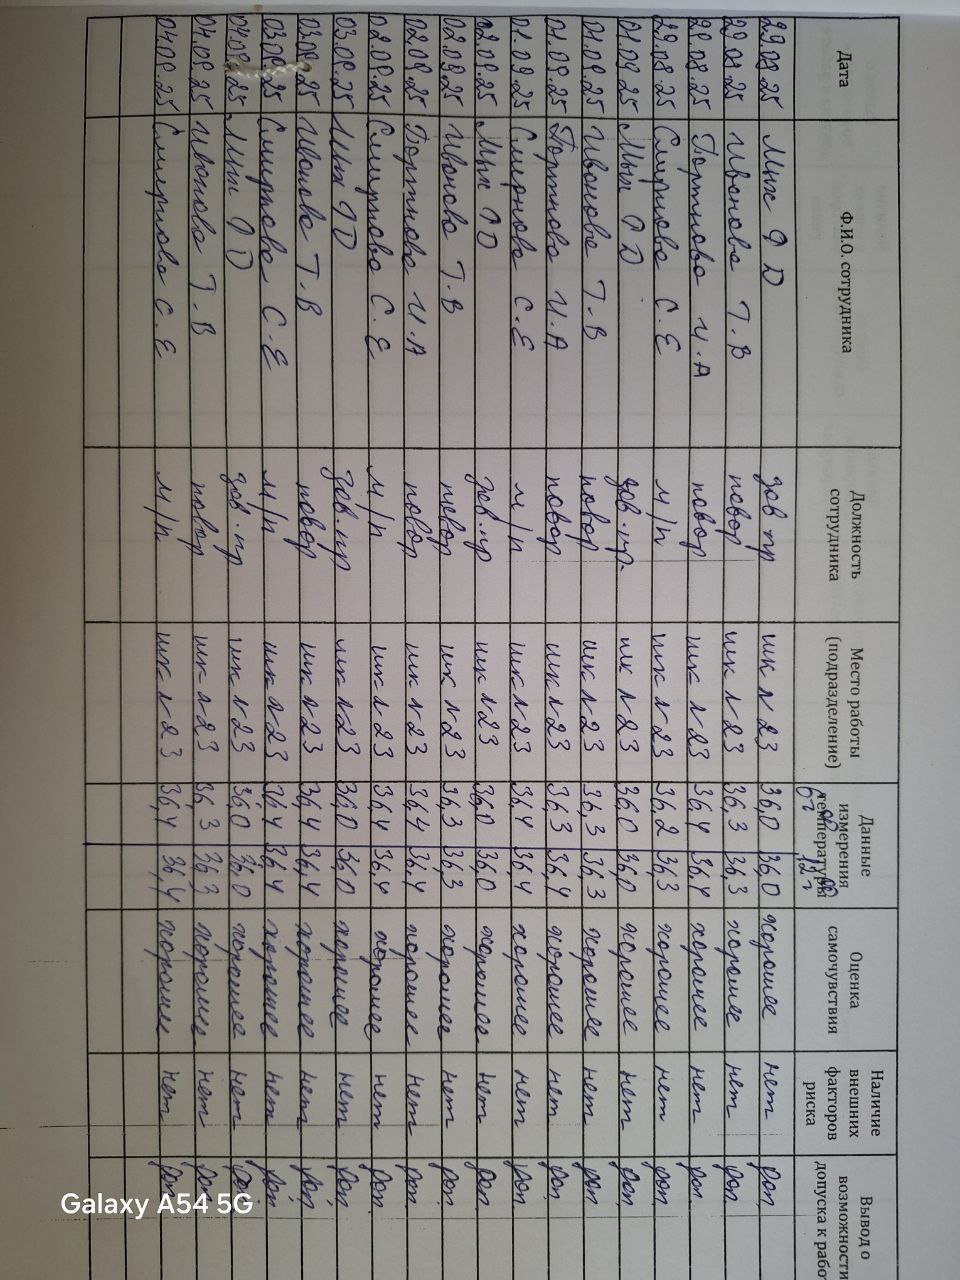 Дата | Ф.И.О. сотрудника | Должность сотрудника | Место работы (подразделение) | Данные измерения температуры | Оценка самочувствия | Наличие внешних факторов риска | Вывод о возможности допуска к рабо
29.08.25 | зав пр | шк №23 | 36,0 | 36,0 | хорошее | нет | доп
29.08.25 | Иванова Т.В | повар | шк №23 | 36,3 | 36,3 | хорошее | нет | доп
29.08.25 | Портнова И.А | повар | шк №23 | 36,4 | 36,4 | хорошее | нет | доп
29.08.25 | Смирнова С.Е | м/п | шк №23 | 36,2 | 36,3 | хорошее | нет | доп
01.09.25 | зав.пр. | шк №23 | 36,0 | 36,0 | хорошее | нет | доп
01.09.25 | Иванова Т.В | повар | шк №23 | 36,3 | 36,3 | хорошее | нет | доп
01.09.25 | Портнова И.А | повар | шк №23 | 36,3 | 36,4 | хорошее | нет | доп
01.09.25 | Смирнова С.Е | м/п | шк №23 | 36,4 | 36,4 | хорошее | нет | доп
02.09.25 | зав.пр | шк №23 | 36,0 | 36,0 | хорошее | нет | доп
02.09.25 | Иванова Т.В | повар | шк №23 | 36,3 | 36,3 | хорошее | нет | доп
02.09.25 | Портнова И.А | повар | шк №23 | 36,4 | 36,4 | хорошее | нет | доп
02.09.25 | Смирнова С.Е | м/п | шк №23 | 36,4 | 36,4 | хорошее | нет | доп
03.09.25 | зав.пр | шк №23 | 36,0 | 36,0 | хорошее | нет | доп
03.09.25 | Иванова Т.В | повар | шк №23 | 36,4 | 36,4 | хорошее | нет | доп
03.09.25 | Смирнова С.Е | м/п | шк №23 | 36,4 | 36,4 | хорошее | нет | доп
04.09.25 | зав.пр | шк №23 | 36,0 | 36,0 | хорошее | нет | доп
04.09.25 | Иванова Т.В | повар | шк №23 | 36,3 | 36,3 | хорошее | нет | доп
04.09.25 | Смирнова С.Е | м/п | шк №23 | 36,4 | 36,4 | хорошее | нет | доп
Galaxy A54 5G